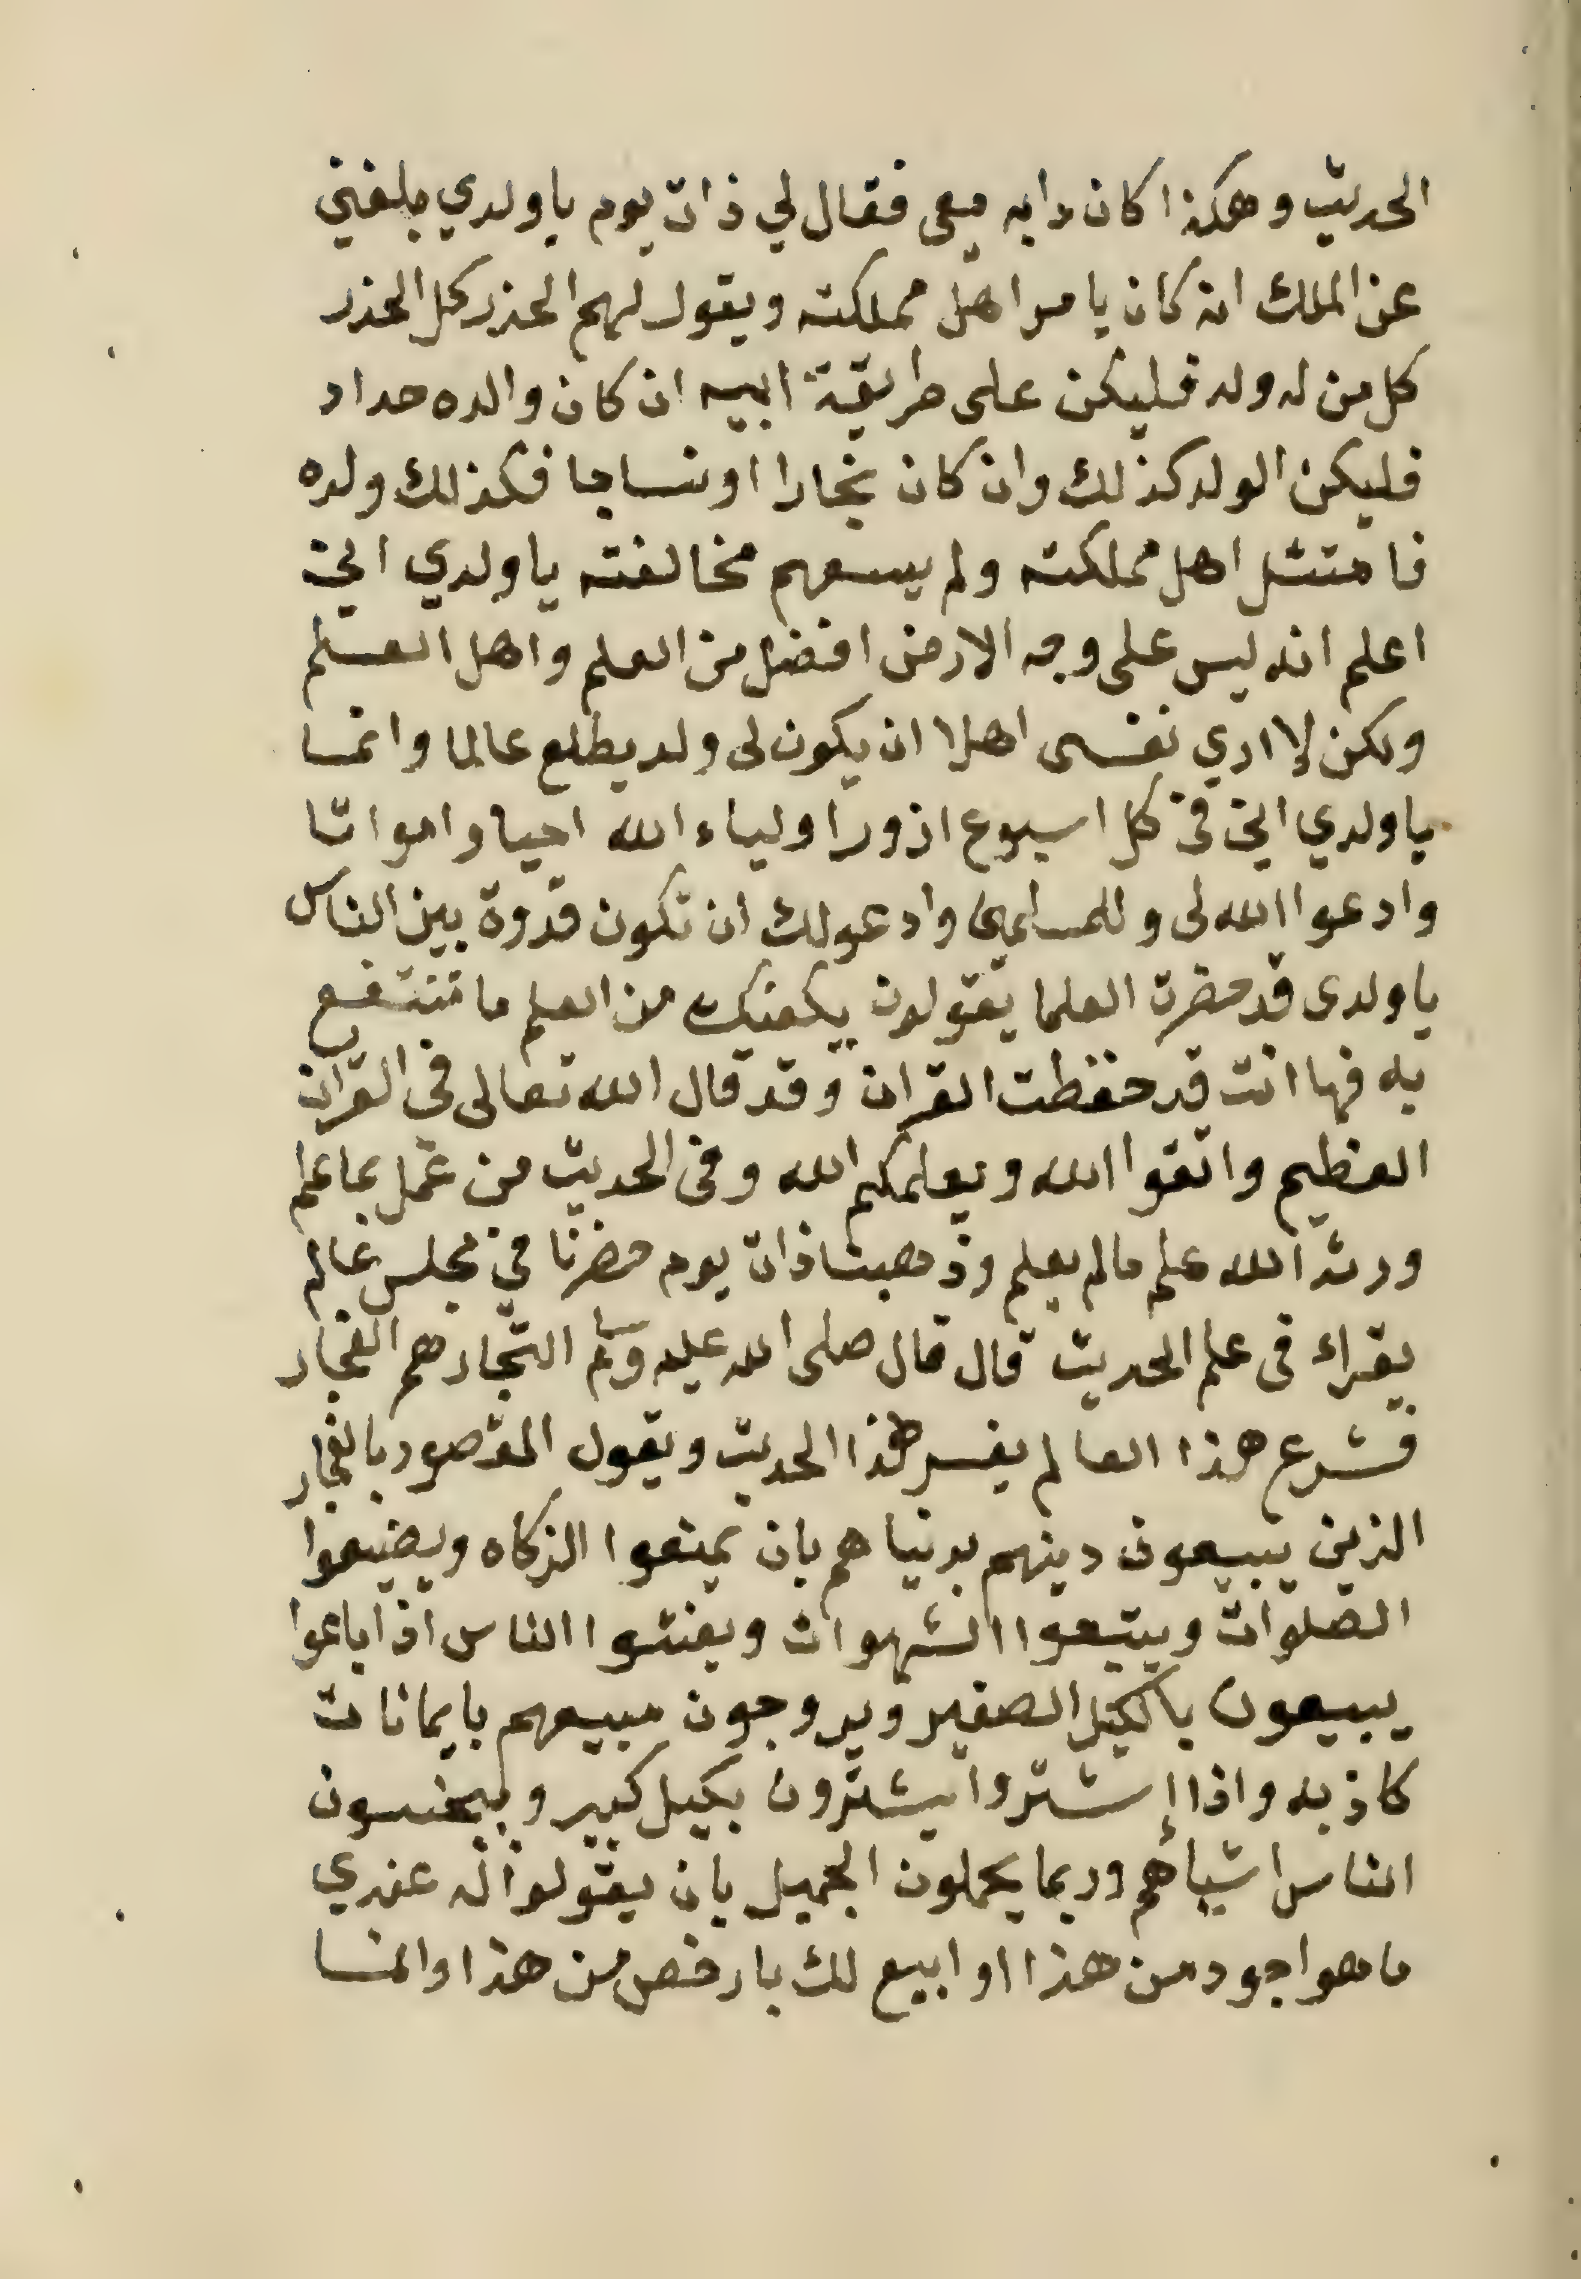 الحديث وهكذا كان دابه معى فقال لي ذات يوم يا ولدي بلغني
عن الملك انه كان يامر اهل مملكته ويقول لهم الحذر كل الحذر
كل من له ولد فليكن على طريقة ابيه ان كان والده حداد
فليكن الولد كذلك وان كان نجارا او نساجا فكذلك ولده
فامتثل اهل مملكته ولم يسعهم مخالفته يا ولدي اني
اعلم انه ليس على وجه الارض افضل من العلم واهل العلم
ولكن لا اري نفسى اهلا ان يكون لى ولد يطلع عالما وانما
يا ولدي اني في كل اسبوع ازور اولياء الله احيا وامواتا
وادعوا الله لى وللمسلمين وادعو لك ان تكون قدوة بين الناس
يا ولدى قد حضرت العلما يقولون يكفيك من العلم ما تنتفع
به فها انت قد حفظت القران وقد قال الله تعالى فى القران
العظيم واتقوا الله ويعلمكم الله وفى الحديث من عمل بما علم
ورثه الله علم مالم يعلم وذهبنا ذات يوم حضرنا في مجلس عالم
يقراء فى علم الحديث قال قال صلى الله عليه وسلم التجار هم الفجار
فشرع هذا العالم يفسر هذا الحديث ويقول المقصود بالفجار
الذين يبيعون دينهم بدنياهم بان يمنعوا الزكاه ويضيعوا
الصلوات ويتبعوا الشهوات ويغشوا الناس اذا باعوا
يبيعون بالكيل الصغير ويروجون مبيعهم بايمانات
كاذبه واذا إشتروا يشترون بكيل كبير ويبخسون
الناس اشياهم وربما يحملون الجميل بان يقولوا له عندي
ما هو اجود من هذا او ابيع لك بارخص من هذا وانما